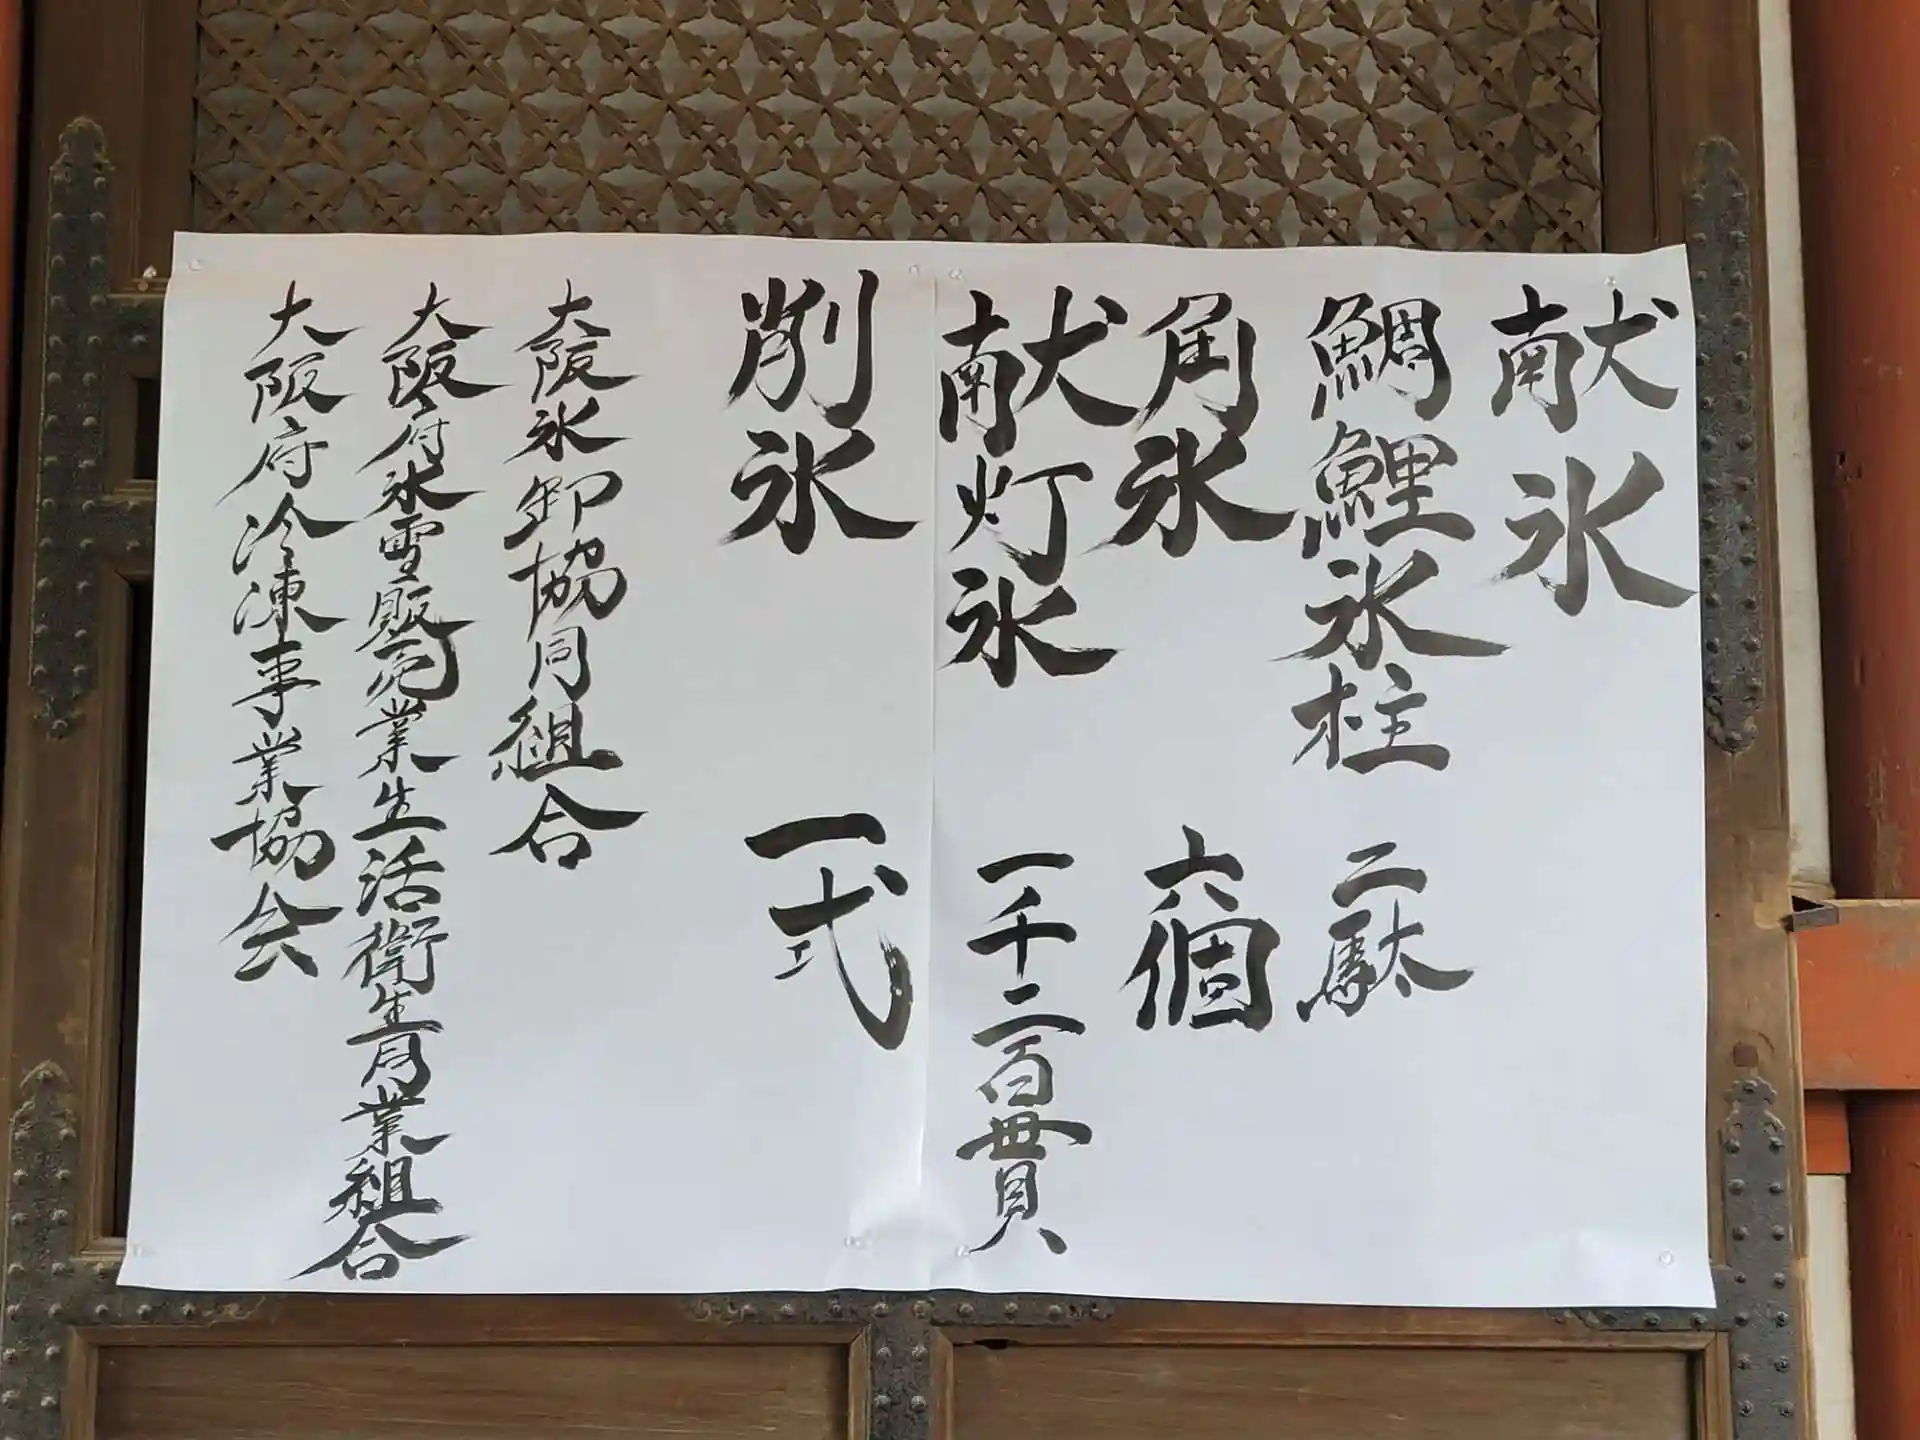 献氷
鯛鯉氷柱 二駄
角氷 六個
献灯氷 一千二百貫
削氷 一式
大阪氷卸協同組合
大阪府氷雪販売業生活衛生同業組合
大阪府冷凍事業協会